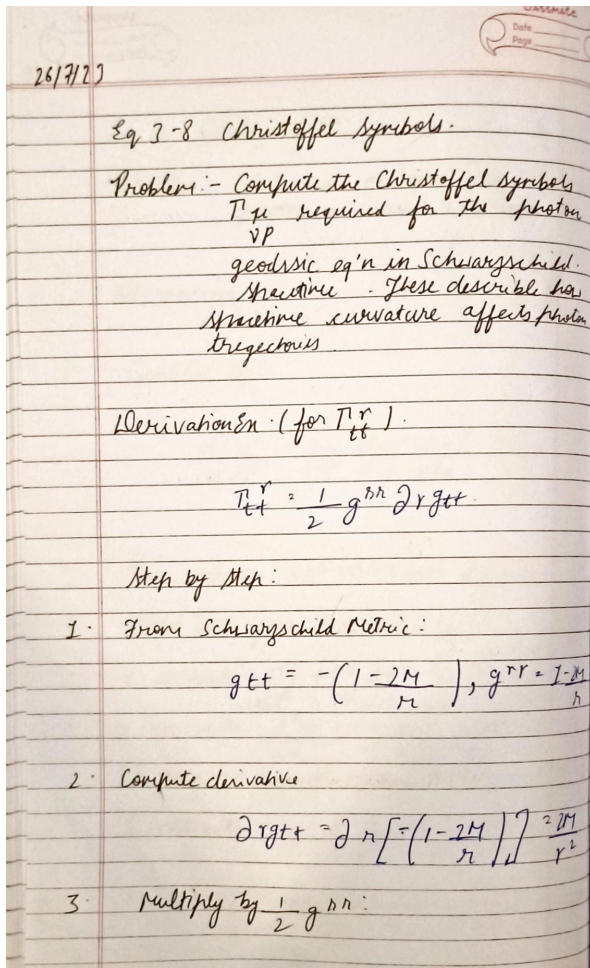 classmate
Date
Page
26/7/23
Eq 3-8 Christoffel Symbols.
Problem:- Compute the Christoffel symbols
Γμ required for the photon
νρ
geodssic eq'n in Schwarzschild.
spacetime. These describle how
spacetime curvature affects photon
tregectories
Derivation En. (for Γ^r_tt).
Γ^r_tt = 1/2 g^rr ∂r gtt
Step by step:
1. From Schwarzschild Metric:
gtt = -(1-2M/r), g^rr = 1-2M/r
2. Compute derivative
∂rgtt = ∂r[-(1-2M/r)] = 2M/r²
3. Multiply by 1/2 g^rr: